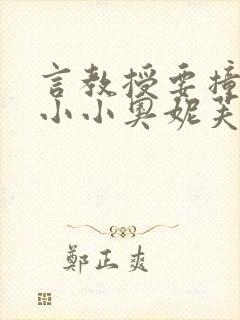 言教授要撞
小小奥妮芙
鄭正爽